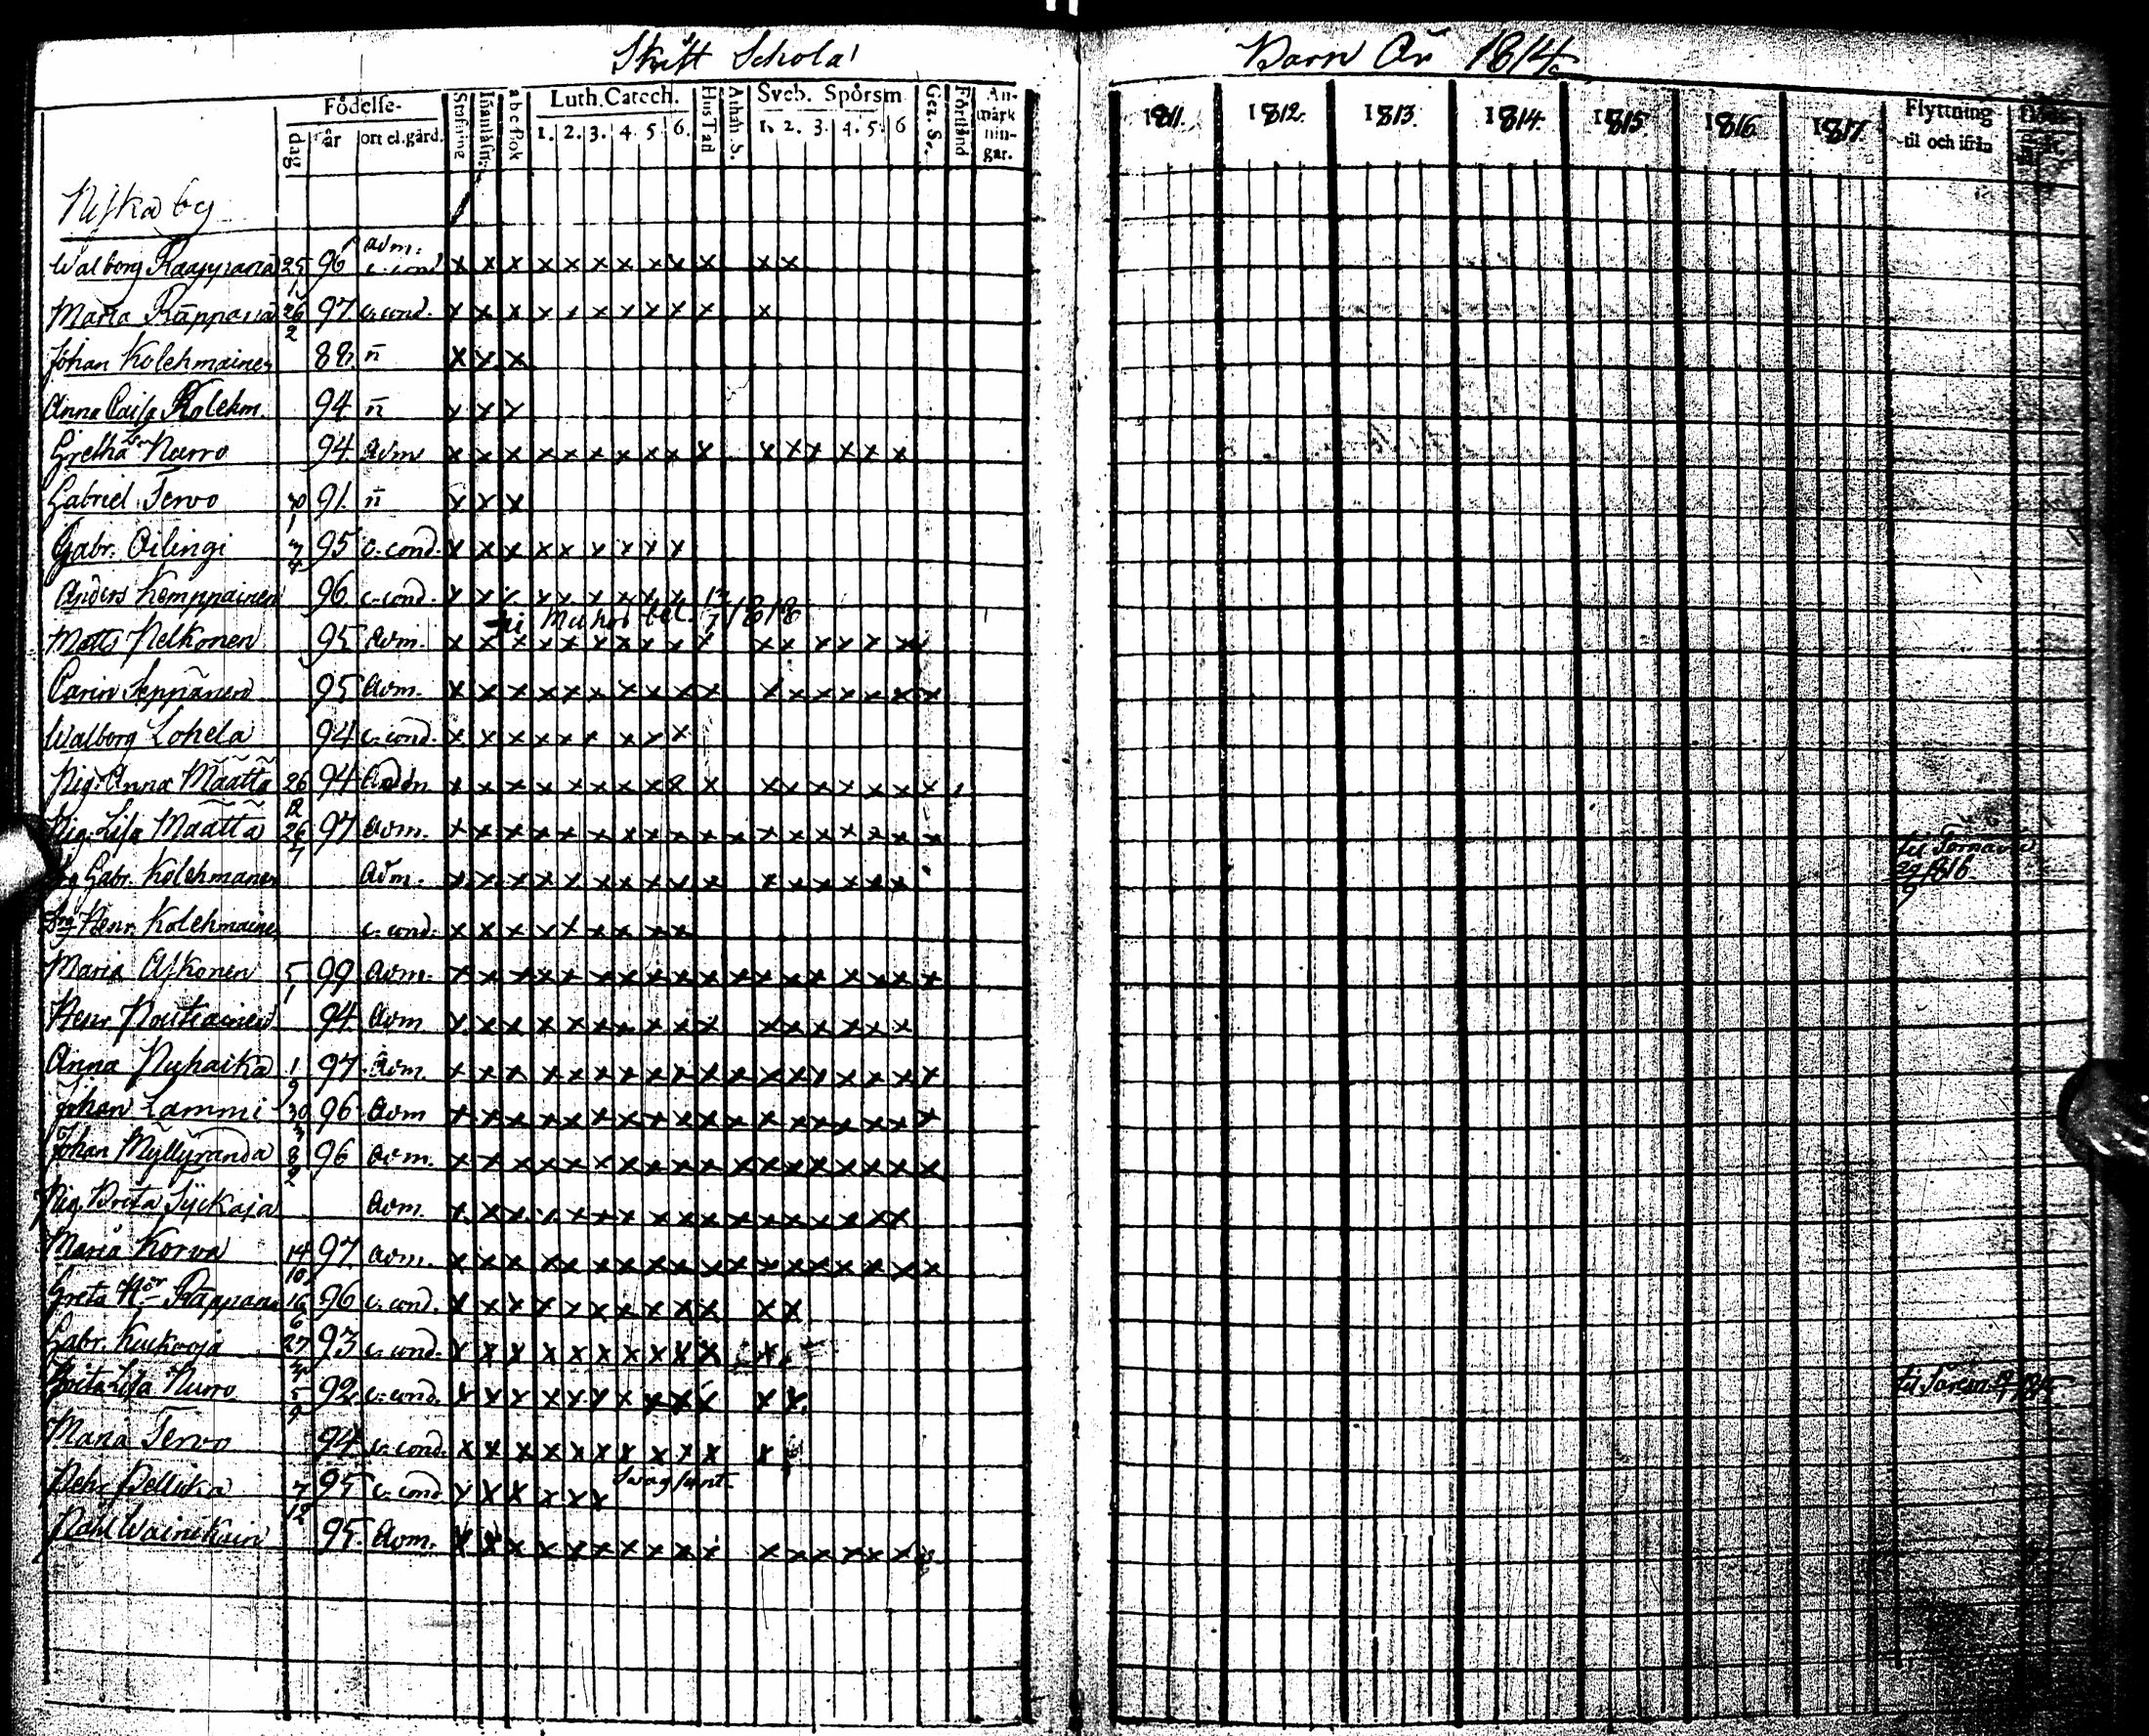 Skrift Schola
Barn År 1814
Födelse-
dag år ort el. gård.
Stafning Innanläsn. abc Bok
Luth. Catech.
1. 2. 3. 4. 5. 6.
Hus Tafl Athan. S.
Sveb. Spörsm
1. 2. 3. 4. 5. 6
Gez. Sv. Förstånd
An-
märk
nin-
gar.
1811. 1812. 1813. 1814. 1815 1816 1817.
Flyttning
til och ifrån
Niska by
Walborg 25/1 96 adm. c. cond x x x x x x x x x x x x
Maria 26/2 97 c. cond. x x x x x x x x x x x
Johan Kolehmainen 88. n x x x
Anna Caisa Kolehm. 94 n x x x
Gretha Nurro 94 adm x x x x x x x x x x x x x x x x
Gabriel Tervo 91. n x x x
Gabr. Oilingi 95 c. cond. x x x x x x x x x
Anders Kemppainen 96 c. cond. x x x x x x x x x
til Muhos bet. 1818
Matts Pelkonen 95 adm. x x x x x x x x x x x x x x x x x
Carin Seppänen 95 adm. x x x x x x x x x x x x x x x x x
Walborg Lohela 94 c. cond. x x x x x x x x x
Pig. Anna Määttä 26/12 94 x x x x x x x x x x x x x x x x x
Pig. Lisa Määttä 26/7 97 adm. x x x x x x x x x x x x x x x x x x
til
29/9 1816.
Gabr. Kolehmainen adm. x x x x x x x x x x x x x x x x
Drg Henr. Kolehmainen c. cond. x x x x x x x x x
Maria Askonen 5/1 99 adm. x x x x x x x x x x x x x x x x x x
Henr. Poutiainen 94 adm x x x x x x x x x x x x x x x x
Anna Puhakka 1/9 97 adm. x x x x x x x x x x x x x x x x x x
Johan Lammi 30/3 96 adm x x x x x x x x x x x x x x x x x x
Johan Myllyranda 8/2 96 adm. x x x x x x x x x x x x x x x x x x
Pig. Brita adm. x x x x x x x x x x x x x x x x x
Maria Korva 14/10 97 adm. x x x x x x x x x x x x x x x x x x
Greta 16/6 96 c. cond. x x x x x x x x x x x x
Gabr. 27 93 c. cond. x x x x x x x x x x x
Brita Lisa Nurro 5/9 92 c. cond. x x x x x x x x x x x x
Maria Tervo 94 c. cond. x x x x x x x x x x x
Pehr 7/12 95 c. cond x x x x x x
95. adm. x x x x x x x x x x x x x x x x x